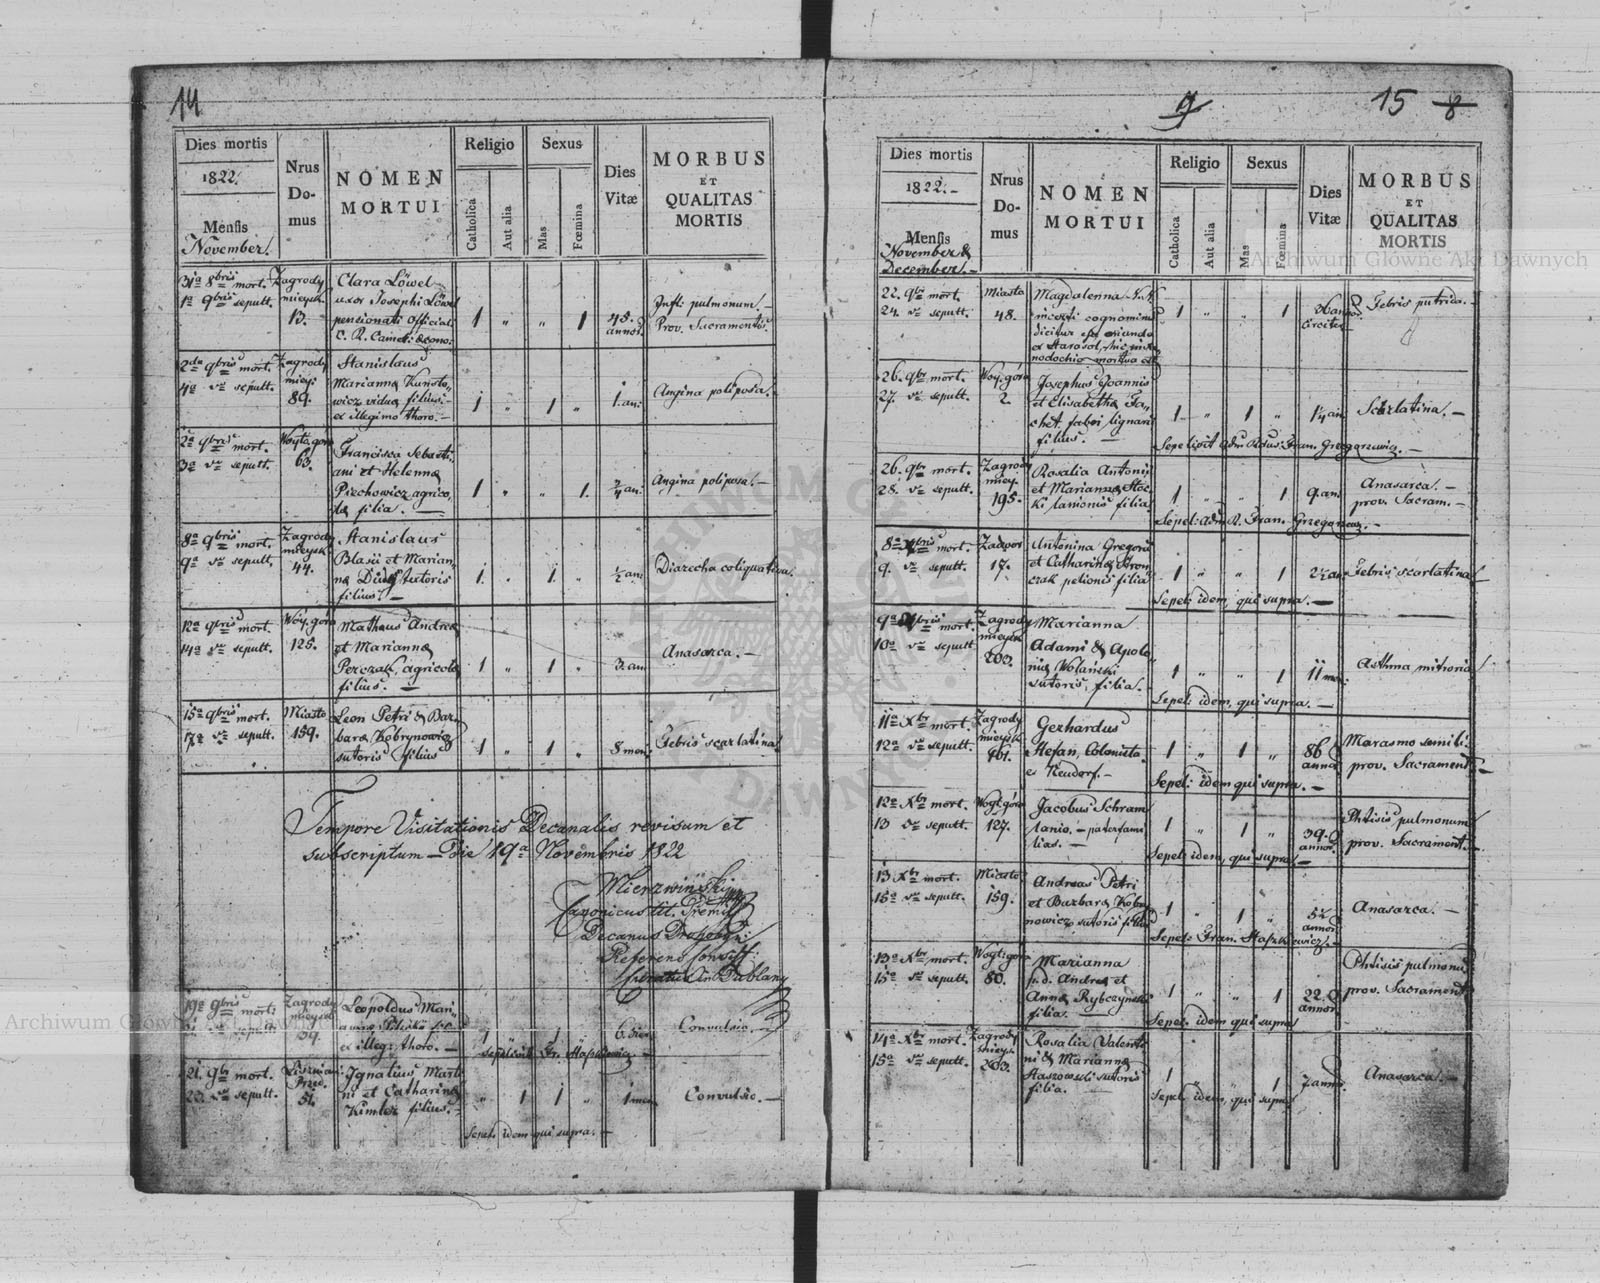 14
Dies mortis
1822.
Mensis
November.
Nrus
Do-
mus
NOMEN
MORTUI
Religio
Catholica
Aut alia
Sexus
Mas
Fœmina
Dies
Vitæ
MORBUS
ET
QUALITAS
MORTIS
31a 8bris mort.
1a 9bris sepult.
Zagrody
mieysk.
13.
Clara Löwel
uxor Josephi Löwel
pensionati Official
C. R. Camer: Econo:
1 „ „ 1
45.
annor.
Infl: pulmonum.
Prov. Sacramentis.
2da 9bris mort.
4a do sepult.
Zagrody
miey:
89.
Stanislaus
Mariannæ Kunsto-
wicz viduæ filius.
ex illegimo thoro.
1 „ 1 „
1. an:
Angina poliposa.
2a 9bris mort.
3a do sepult.
Woyto. gora
63.
Francisca Sebasti-
ani et Helennæ
Piechowicz agrico-
læ filia.
1 „ „ 1.
an:
Angina poliposa.
8a 9bris mort.
9a do sepult.
Zagrody
mieysk
44.
Stanislaus
Blasii et Marian-
næ sutoris
filius.
1. „ 1. „
½ an:
Diarrhea coliquativa.
12a 9bris mort.
14a do sepult.
Woy. góra
125.
Matheus Andreæ
et Mariannæ
Perczak, agricolæ
filius.
1 „ 1 „
3. an:
Anasarca.
15a 9bris mort.
17a do sepult.
Miasto
159.
Leon Petri & Bar-
baræ Kobrynowicz
sutoris filius
1 „ 1 „
8 men:
Febris scarlatina
Tempore Visitationis Decanalis revisum et
subscriptum Die 19a Novembris 1822
Mierzwiński
Canonicus tit. Premisl
Decanus Drohob:
Referens Consist:
Curatus in Dublany
19a 9bris mort:
Zagrody
mieysk
39.
Leopoldus Mari-
annæ
ex illeg: thoro.
6. dier:
Convulsio.
sepelivit Fr. Stapkiewicz
21. 9br mort.
23. do sepult.
51.
Ignatius Marti-
ni et Catharinæ
Kimler filius.
„ 1 1 „
Convulsio.
Sepel: idem qui supra.
9
15 8
Dies mortis
1822.
Mensis
November &
December.
Nrus
Do-
mus
NOMEN
MORTUI
Religio
Catholica
Aut alia
Sexus
Mas
Fœmina
Dies
Vitæ
MORBUS
ET
QUALITAS
MORTIS
22. 9br mort.
24. do sepult.
Miasto
48.
Magdalenna N.N.
incerti cognominis
dicitur esse oriunda
ex Starasol, hic in Xe-
nodochio mortua est
1 „ „ 1
26 annor
circiter
Febris putrida.
26. 9br mort.
27. do sepult.
Woy. góra
2
Josephus Joannis
et Elisabethæ Ja-
chet fabri lignari
filius.
1 „ 1 „
1¼ an:
Scarlatina.
Sepelivit Adm Rdus: Fran: Grzegorzewicz.
26. 9br mort.
28. do sepult.
Zagrody
miey.
195.
Rosalia Antonii
et Mariannæ Stec-
ki lanionis filia.
1 „ „ 1
9. an:
Anasarca.
prov. Sacram.
Sepel: Adm R. Fran. Grzegorzewicz.
8a Xbris mort.
9. do sepult.
Zadwor
17.
Antonina Gregorii
et Catharinæ
pelionis filia
1 „ „ 1
2½ an:
Febris scarlatina
Sepel: idem, qui supra.
9a Xbris mort.
10a do sepult.
Zagrody
mieysk
203.
Marianna
Adami & Apolo-
niæ Wolański
sutoris, filia.
1 „ „ 1
11 men:
Asthma
Sepel: idem, qui supra.
11a Xbr mort.
12a do sepult.
Zagrody
mieysk
161.
Gerhardus
Stefan, Colonista
e Neudorf.
1 „ 1 „
86
annor
Marasmo senili
prov. Sacrament:
Sepel: idem qui supra.
12a Xbr mort.
13 do sepult.
Wogt: góra
127.
Jacobus Schram
lanio. paterfami-
lias.
1 „ 1 „
39.
annor.
Phtisis pulmonum
prov. Sacrament.
Sepel: idem, qui supra
13 Xbr mort.
15a do sepult.
Miasto
159.
Andreas Petri
et Barbaræ Kobry-
nowicz sutoris filius
1 „ 1 „
5½
annor
Anasarca.
Sepel: Fran. Stapkiewicz.
13a Xbr mort.
15a do sepult.
Wogt: góra
80.
Marianna
p.d. Andreæ et
Annæ Rybczyński
filia.
1 „ „ 1
22.
annor
Phtisis pulmonum
prov. Sacrament:
Sepel: idem qui supra
14a Xbr mort.
15a do sepult.
Zagrody
mieysk.
263.
Rosalia Valenti-
ni & Mariannæ
Staszowski sutoris
filia.
1 „ „ 1
7 annor.
Anasarca.
Sepel: idem, qui supra
Archiwum Główne Akt Dawnych
Archiwum Główne Akt Dawnych
ARCHIWUM GŁÓWNE AKT DAWNYCH